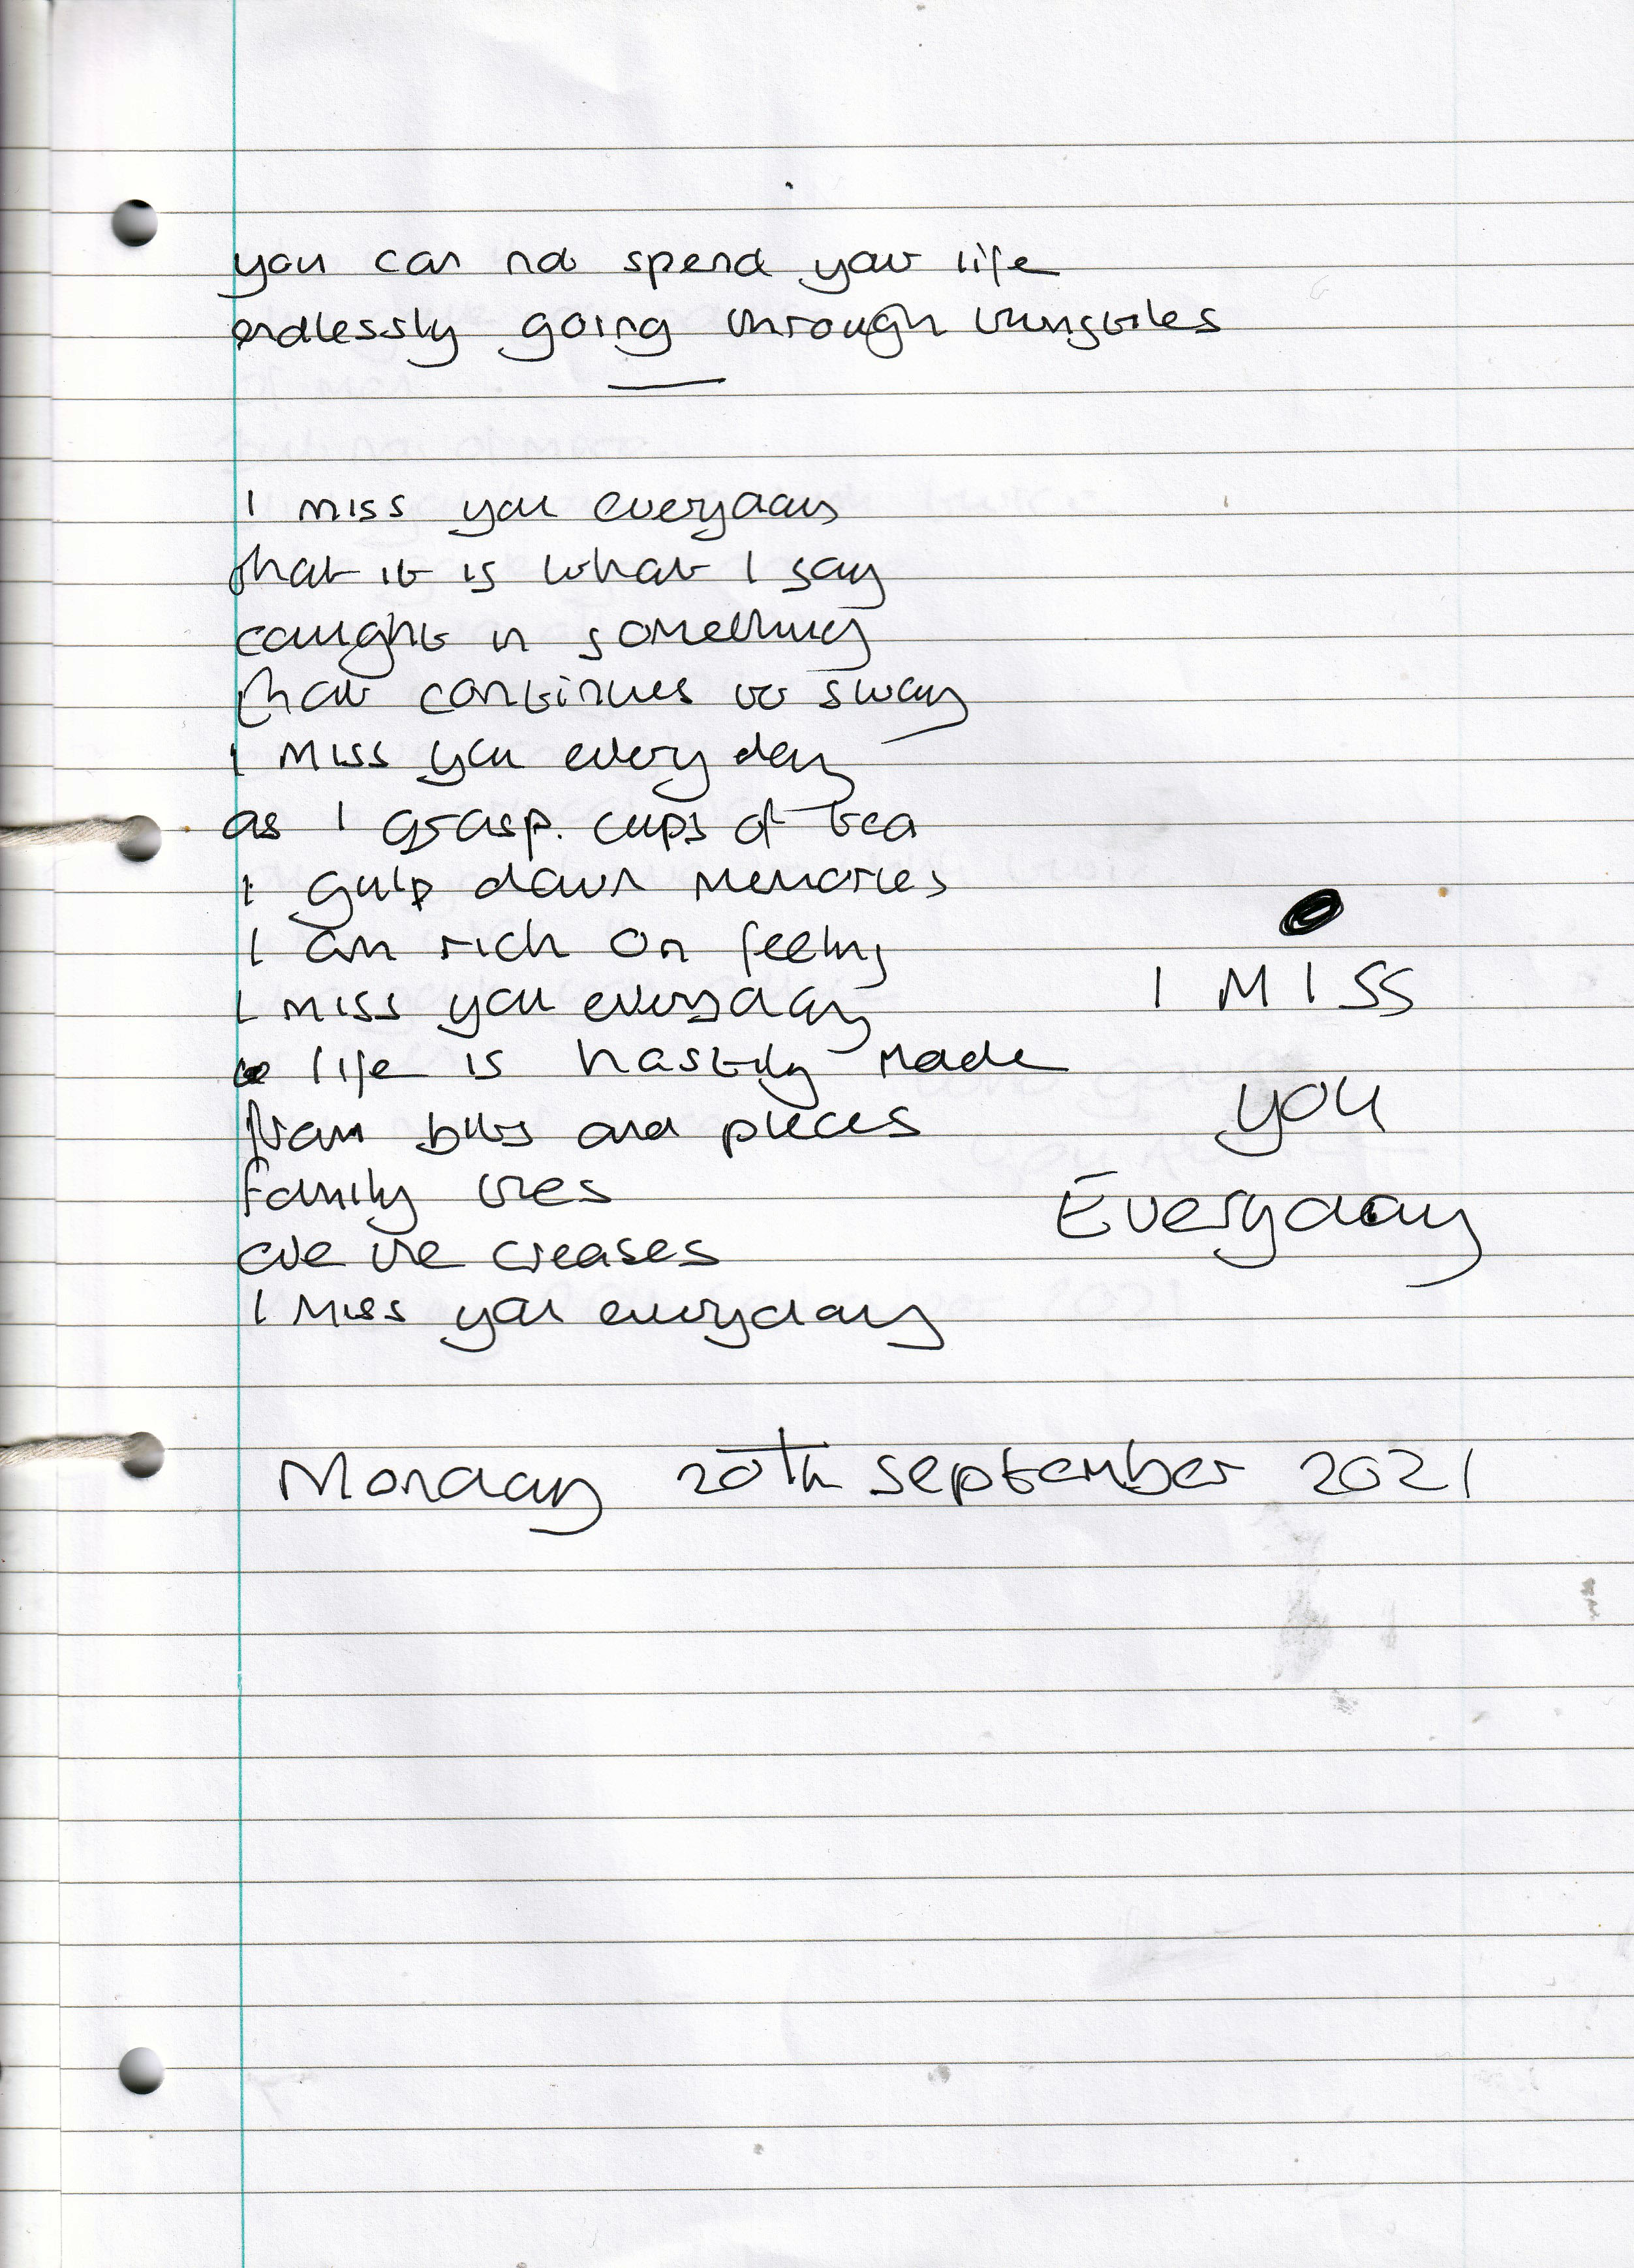 you can not spend your life
endlessly going through turnstiles
I miss you everyday
that it is what I say
caught in something
that continues to sway
I miss you every day
as I grasp. cups of tea
I gulp down memories
I am rich on feeling
I miss you everyday
life is hastily made
from bits and pieces
family ties
are the creases
I miss you everyday
I MISS
you
Everyday
Monday 20th September 2021